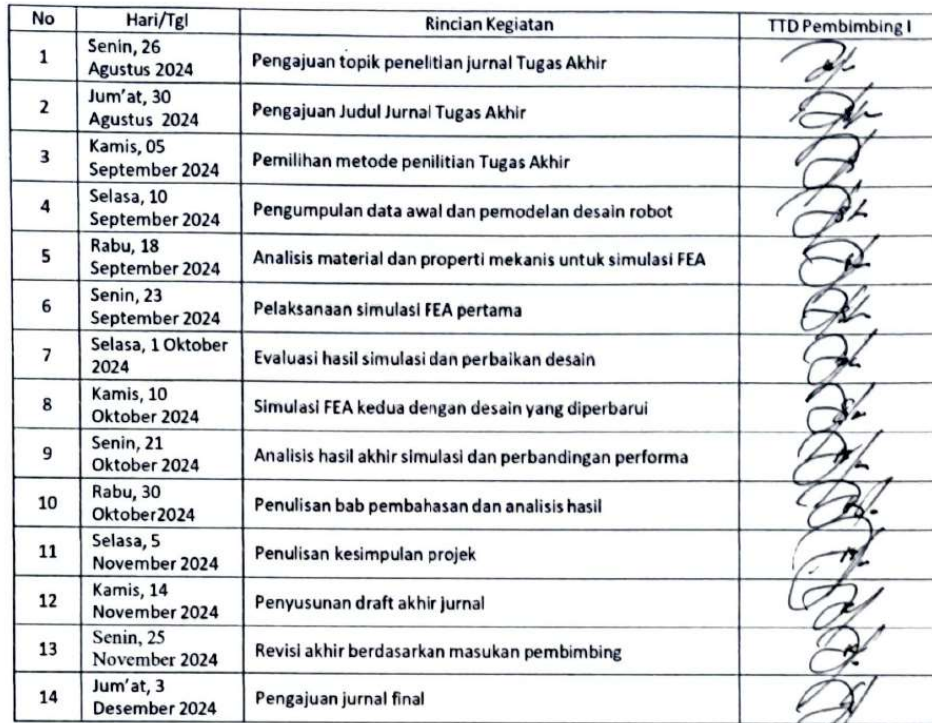 No Hari/Tgl Rincian Kegiatan TTD Pembimbing I
1 Senin, 26
Agustus 2024 Pengajuan topik penelitian jurnal Tugas Akhir
2 Jum'at, 30
Agustus 2024 Pengajuan Judul Jurnal Tugas Akhir
3 Kamis, 05
September 2024 Pemilihan metode penilitian Tugas Akhir
4 Selasa, 10
September 2024 Pengumpulan data awal dan pemodelan desain robot
5 Rabu, 18
September 2024 Analisis material dan properti mekanis untuk simulasi FEA
6 Senin, 23
September 2024 Pelaksanaan simulasi FEA pertama
7 Selasa, 1 Oktober
2024 Evaluasi hasil simulasi dan perbaikan desain
8 Kamis, 10
Oktober 2024 Simulasi FEA kedua dengan desain yang diperbarui
9 Senin, 21
Oktober 2024 Analisis hasil akhir simulasi dan perbandingan performa
10 Rabu, 30
Oktober2024 Penulisan bab pembahasan dan analisis hasil
11 Selasa, 5
November 2024 Penulisan kesimpulan projek
12 Kamis, 14
November 2024 Penyusunan draft akhir jurnal
13 Senin, 25
November 2024 Revisi akhir berdasarkan masukan pembimbing
14 Jum'at, 3
Desember 2024 Pengajuan jurnal final